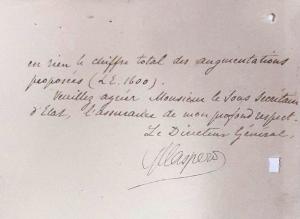 en rien le chiffre total des augmentations
proposées (L.E. 1600).
Veuillez agréer Monsieur le Sous Secrétaire
d'Etat, l'assurance de mon profond respect.
Le Directeur Général,
G Maspero